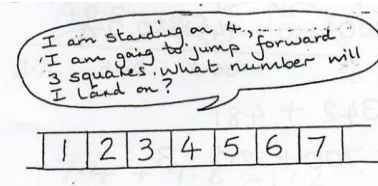 I am standing on 4.
I am going to jump forward
3 squares. What number will
I land on?
1 2 3 4 5 6 7